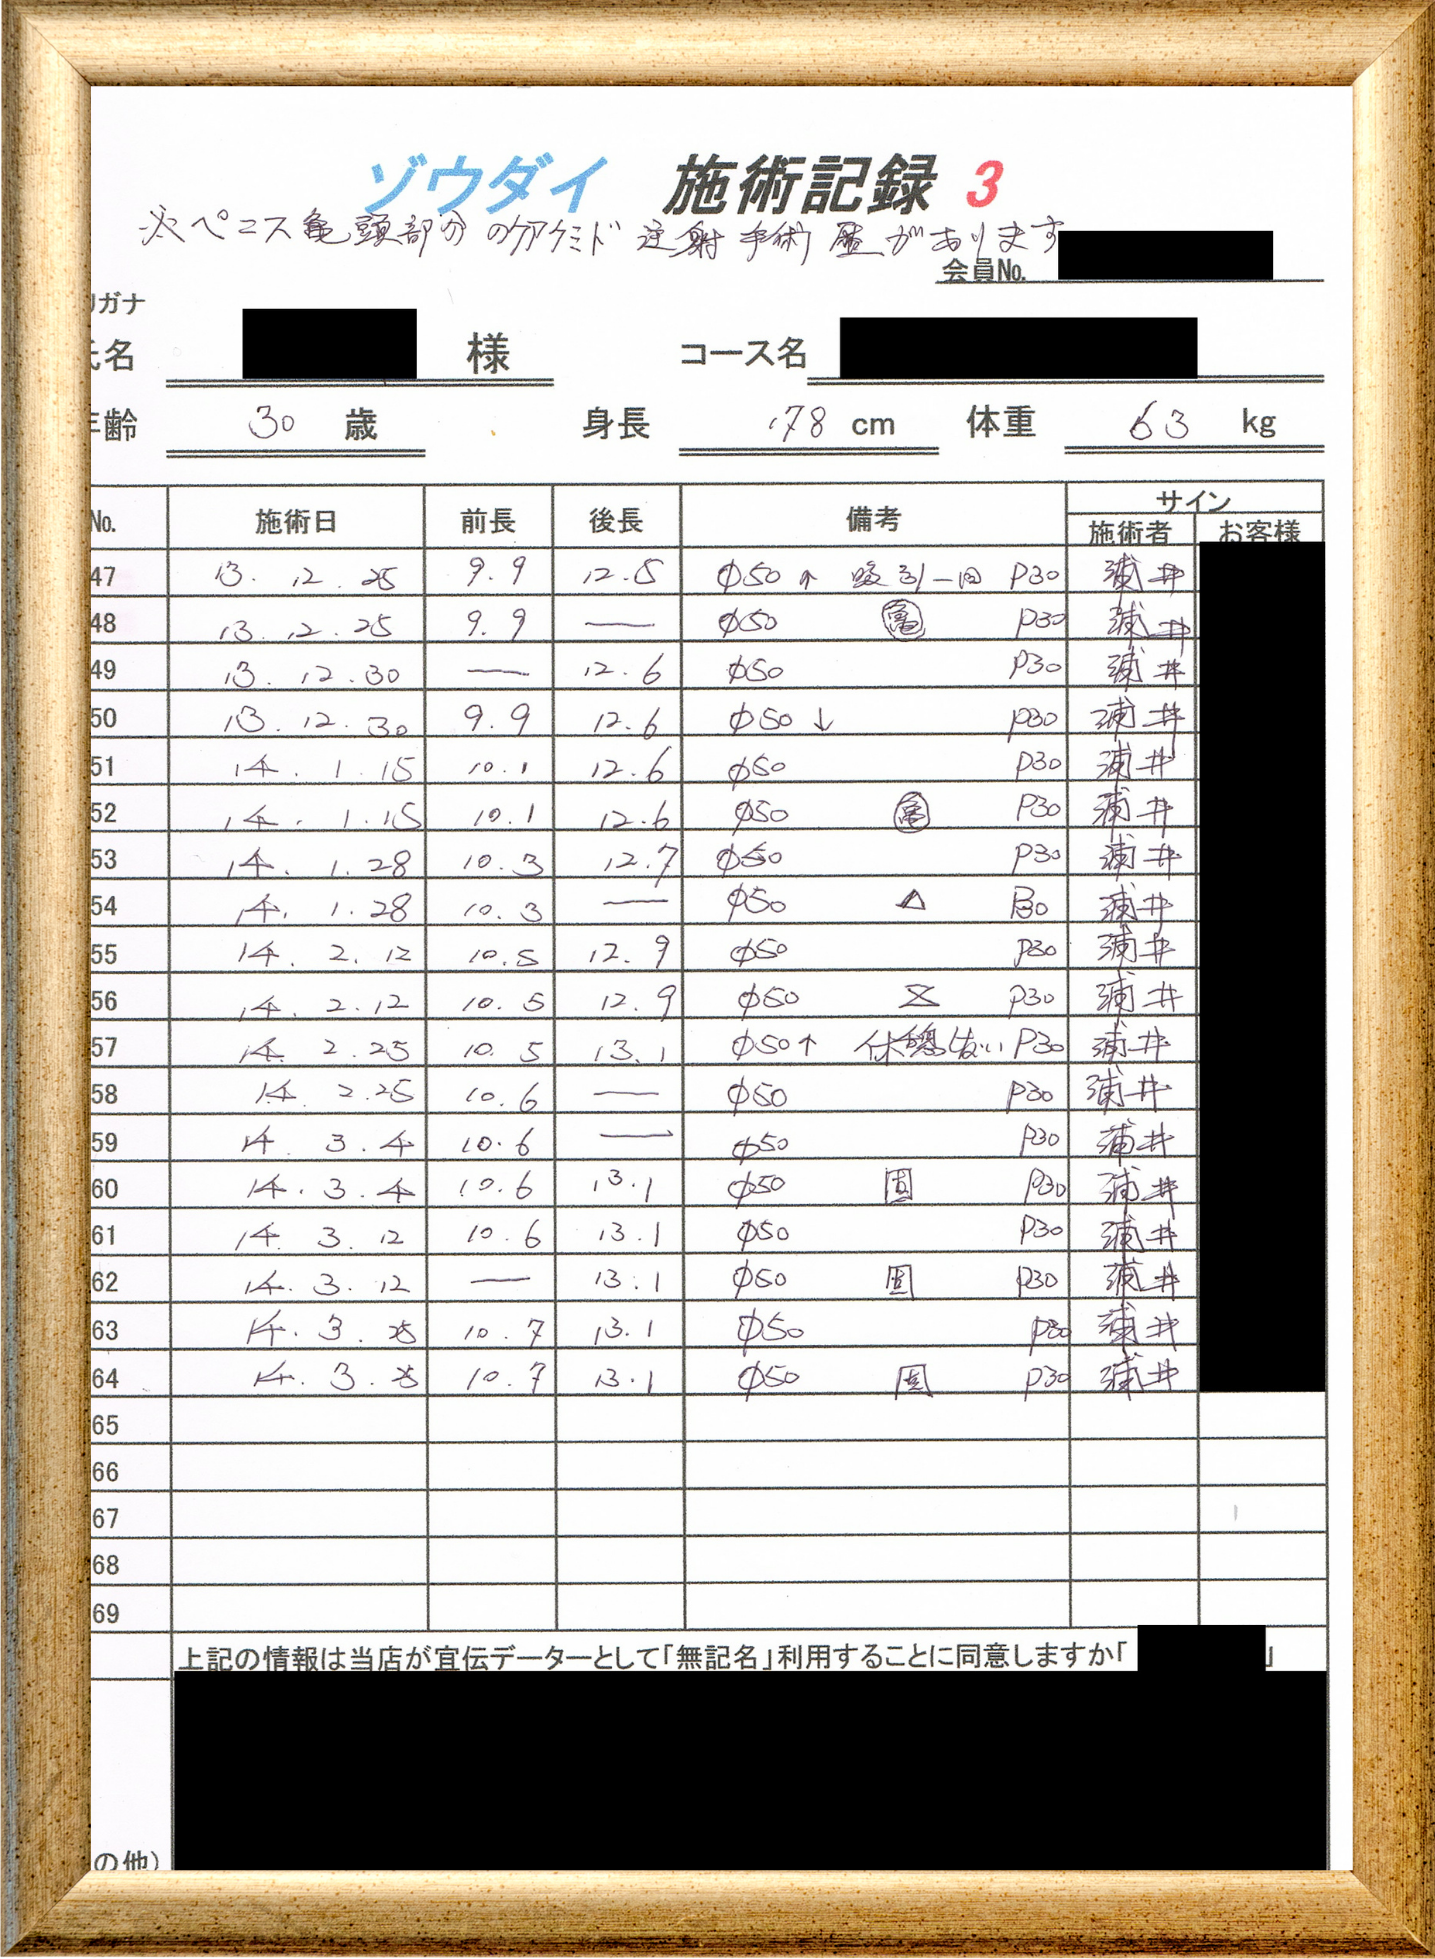 ゾウダイ 施術記録 3
※ペニス亀頭部分のアクアミド注射手術歴があります
会員No.
リガナ
氏名 様 コース名
年齢 30 歳 身長 178 cm 体重 63 kg
No. 施術日 前長 後長 備考 サイン
施術者 お客様
47 13. 12. 25 9.9 12.5 φ50 ↑ 吸引一回 P30 浦井
48 13. 12. 25 9.9 — φ50 亀 P30 浦井
49 13. 12. 30 — 12.6 φ50 P30 浦井
50 13. 12. 30 9.9 12.6 φ50 ↓ P30 浦井
51 14. 1. 15 10.1 12.6 φ50 P30 浦井
52 14. 1. 15 10.1 12.6 φ50 亀 P30 浦井
53 14. 1. 28 10.3 12.7 φ50 P30 浦井
54 14. 1. 28 10.3 — φ50 △ P30 浦井
55 14. 2. 12 10.5 12.9 φ50 P30 浦井
56 14. 2. 12 10.5 12.9 φ50 P30 浦井
57 14. 2. 25 10.5 13.1 φ50 ↑ 休憩 P30 浦井
58 14. 2. 25 10.6 — φ50 P30 浦井
59 14. 3. 4 10.6 — φ50 P30 浦井
60 14. 3. 4 10.6 13.1 φ50 固 P30 浦井
61 14. 3. 12 10.6 13.1 φ50 P30 浦井
62 14. 3. 12 — 13.1 φ50 固 P30 浦井
63 14. 3. 25 10.7 13.1 φ50 P30 浦井
64 14. 3. 25 10.7 13.1 φ50 固 P30 浦井
65
66
67
68
69
上記の情報は当店が宣伝データーとして「無記名」利用することに同意しますか「 」
の他)